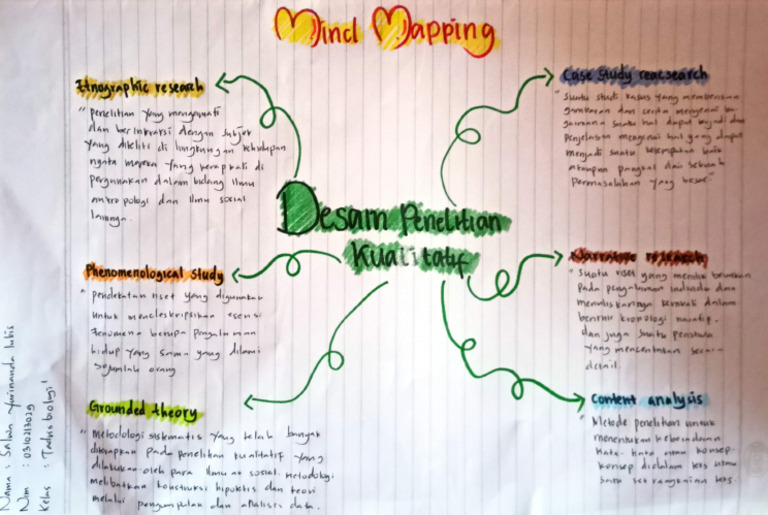 Mind Mapping
Etnographic research
" penelitian yang mengamati
dan berinteraksi dengan subjek
yang diteliti di lingkungan kehidupan
nyata mereka yang kerap kali di
pergunakan dalam bidang ilmu
antropologi dan ilmu sosial
lainnya.
Phenomenological study
" pendekatan riset yang digunakan
untuk mendeskripsikan esensi
fenomena berupa pengalaman
hidup yang sama yang dilami
sejumlah orang
Grounded theory
" Metodologi sistematis yang telah banyak
diterapkan pada penelitian kualitatif yang
dilakukan oleh para ilmuan sosial. Metodologi
melibatkan konstruksi hipotesis dan teori
melalui pengumpulan dan analisis data.
Desain Penelitian
Kualitatif
Case study reacsearch
" Suatu studi kasus yang memberikan
gambaran dan cerita mengenai ba-
gaimana suatu hal dapat terjadi dan
penjelasan mengenai hal yang dapat
menjadi suatu kesempatan baik
ataupun pangkal dari sebuah
permasalahan yang besar"
Narrative research
" Suatu riset yang
pada pengalaman individu dan
menuliskannya kembali dalam
bentuk kronologi naratif.
dan juga suatu peristiwa
yang menceritakan secara
detail.
Content analysis
" Metode penelitian untuk
menentukan keberadaan
kata-kata atau konsep-
konsep didalam teks atau
serangkaian teks.
Nama : Salwa Yurinanda lubis
Nim : 0310213029
Kelas : Tadris biologi 1